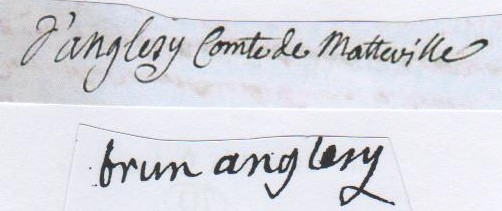 d'anglezy Comte de Matteville
brun anglesy